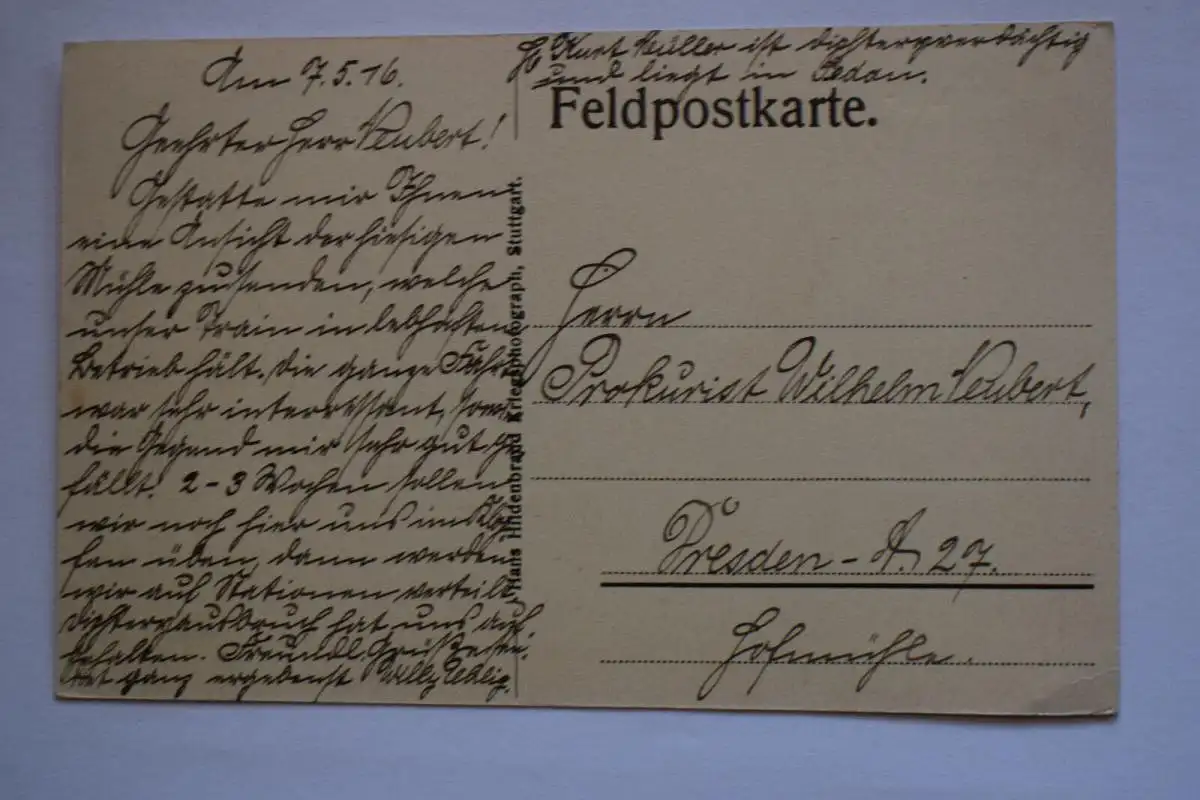 Am 7.5.16.
Geehrter Herr Neubert!
Gestatte mir Ihnen
eine Ansicht der hiesigen
Mühle zusenden, welche
unser Train in lebhaften
Betrieb hält. Die ganze Fahrt
war sehr interessant,
die Gegend mir sehr gut ge
fällt. 2-3 Wochen sollen
wir noch hier uns im
üben, dann werden
wir auf Stationen verteilt,
Diphteryausbruch hat uns auf
gehalten. Freundl. Grüße
ganz ergebenst Willy
Kurt Müller ist diphterieverdächtig
und liegt in Sedan.
Feldpostkarte.
Hans Hildenbrand Kriegsphotograph, Stuttgart.
Herrn
Prokurist Wilhelm Neubert,
Dresden-A. 27.
Hofmühle.